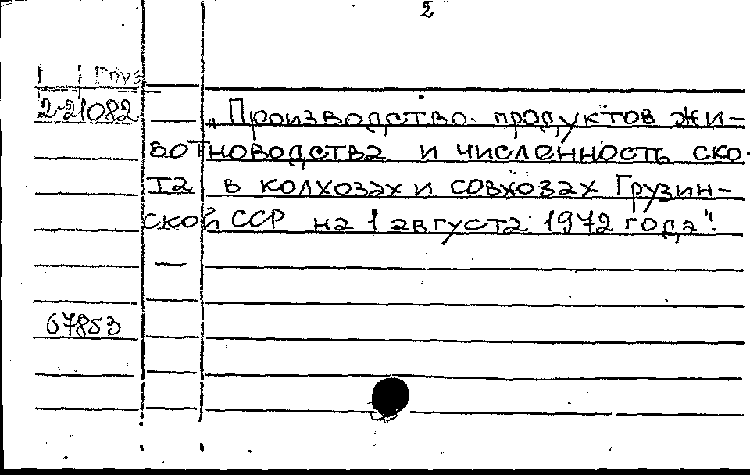 2
Груз
2-21082 — „Производство продуктов жи-
вотноводства и численность ско-
та в колхозах и совхозах Грузин-
ской ССР на 1 августа 1972 года".
—
67853